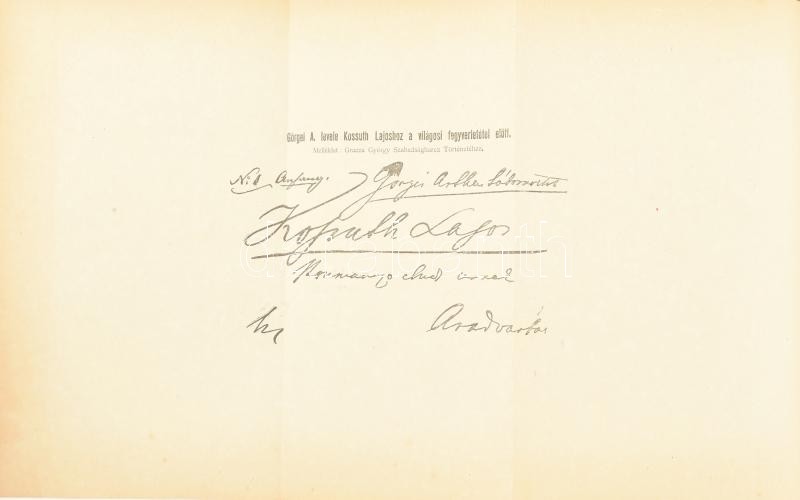 Görgei A. levele Kossuth Lajoshoz a világosi fegyverletétel előtt.
Melléklet: Gracza György Szabadságharcz Történetéhez.
Görgei Arthur
Kossuth Lajos
Kormányzo elnök urnak
Aradvárba